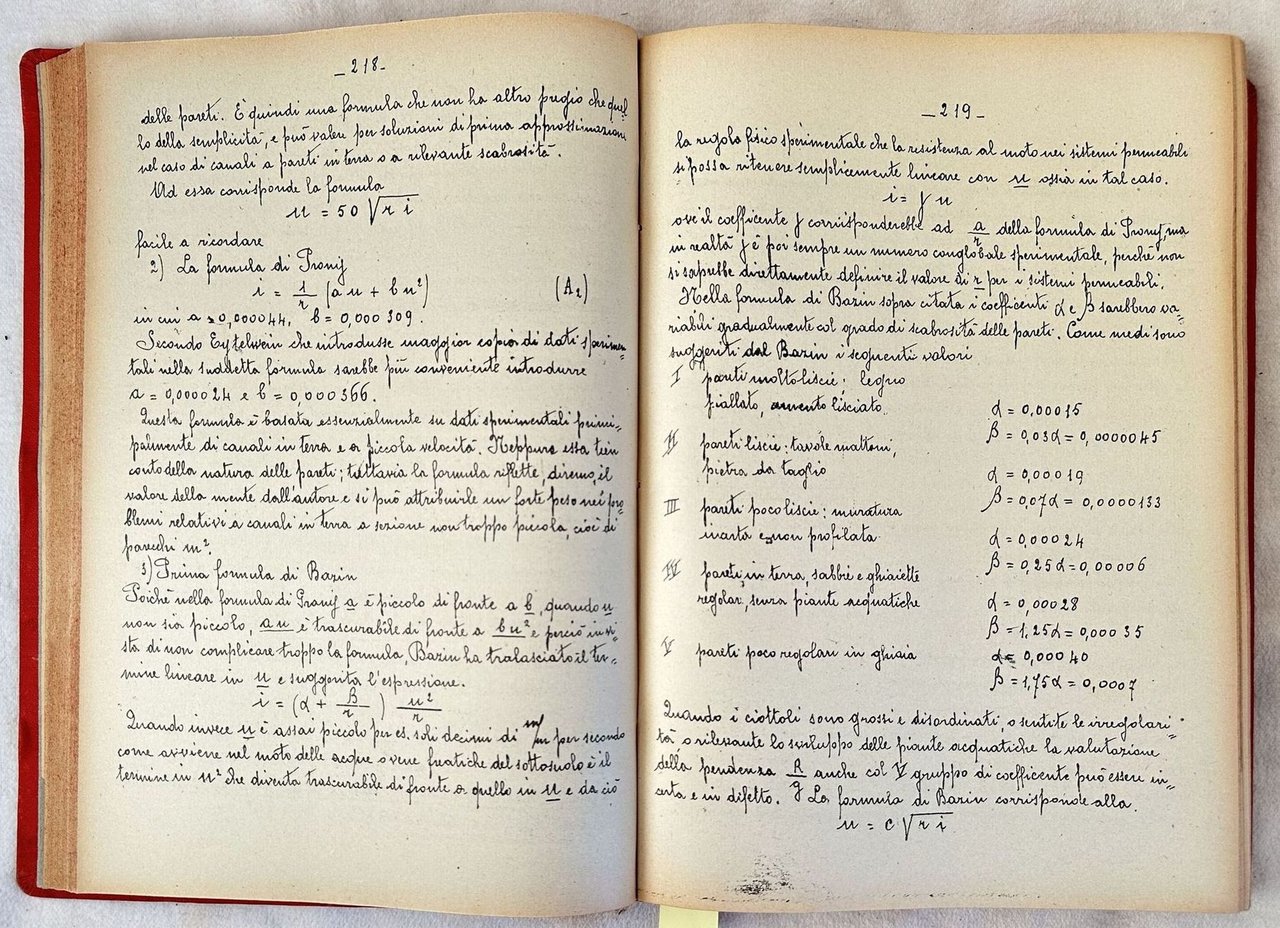 _218_
delle pareti. È quindi una formula che non ha altro pregio che quel
lo della semplicità, e può valere per soluzioni di prima approssimazione
nel caso di canali a pareti in terra o a rilevante scabrosità.
Ad essa corrisponde la formula
u = 50 √r i
facile a ricordare
2) La formula di Prony
i = 1/r (a u + b u²) (A₂)
in cui a = 0,000044, b = 0,000309.
Secondo Eytelwein che introdusse maggior copia di dati sperimen=
tali nella suddetta formula sarebbe più conveniente introdurre
a = 0,000024 e b = 0,000366.
Questa formula è basata essenzialmente su dati sperimentali princi=
palmente di canali in terra e a piccola velocità. Neppure essa tien
conto della natura delle pareti; tuttavia la formula riflette, diremo, il
valore della mente dell'autore e si può attribuirle un forte peso nei pro=
blemi relativi a canali in terra a sezione non troppo piccola, cioè di
parecchi m².
3) Prima formula di Bazin
Poichè nella formula di Prony a è piccolo di fronte a b, quando u
non sia piccolo, au è trascurabile di fronte a bu² e perciò in vi=
sta di non complicare troppo la formula, Bazin ha tralasciato il ter=
mine lineare in u e suggerita l'espressione.
i = (α + β/r) u²/r
Quando invece u è assai piccolo per es. soli decimi di m/m per secondo
come avviene nel moto delle acque o vene freatiche del sottosuolo è il
termine in u² che diventa trascurabile di fronte a quello in u e da ciò
_219_
la regola fisico sperimentale che la resistenza al moto nei sistemi permeabili
si possa ritenere semplicemente lineare con u ossia in tal caso.
i = γ u
ove il coefficente γ corrisponderebbe ad a/r della formula di Prony, ma
in realtà γ è poi sempre un numero conglobale sperimentale, perchè non
si saprebbe direttamente definire il valore di r per i sistemi permeabili.
Nella formula di Bazin sopra citata i coefficenti α e β sarebbero va=
riabili gradualmente col grado di scabrosità delle pareti. Come medi sono
suggeriti dal Bazin i seguenti valori
I pareti molto liscie; legno
piallato, cemento lisciato. α = 0,00015
β = 0,03α = 0,0000045
II pareti liscie: tavole mattoni,
pietra da taglio α = 0,00019
β = 0,07α = 0,0000133
III pareti poco liscie: muratura
inarta e non profilata α = 0,00024
β = 0,25α = 0,00006
IV pareti in terra, sabbie e ghiaiette
regolari, senza piante acquatiche α = 0,00028
β = 1,25α = 0,00035
V pareti poco regolari in ghiaia α = 0,00040
β = 1,75α = 0,0007
Quando i ciottoli sono grossi e disordinati, o sentite le irregolari=
tà o rilevante lo sviluppo delle piante acquatiche la valutazione
della pendenza R/g anche col V gruppo di coefficente può essere in=
certa e in difetto. La formula di Bazin corrisponde alla.
u = c √r i